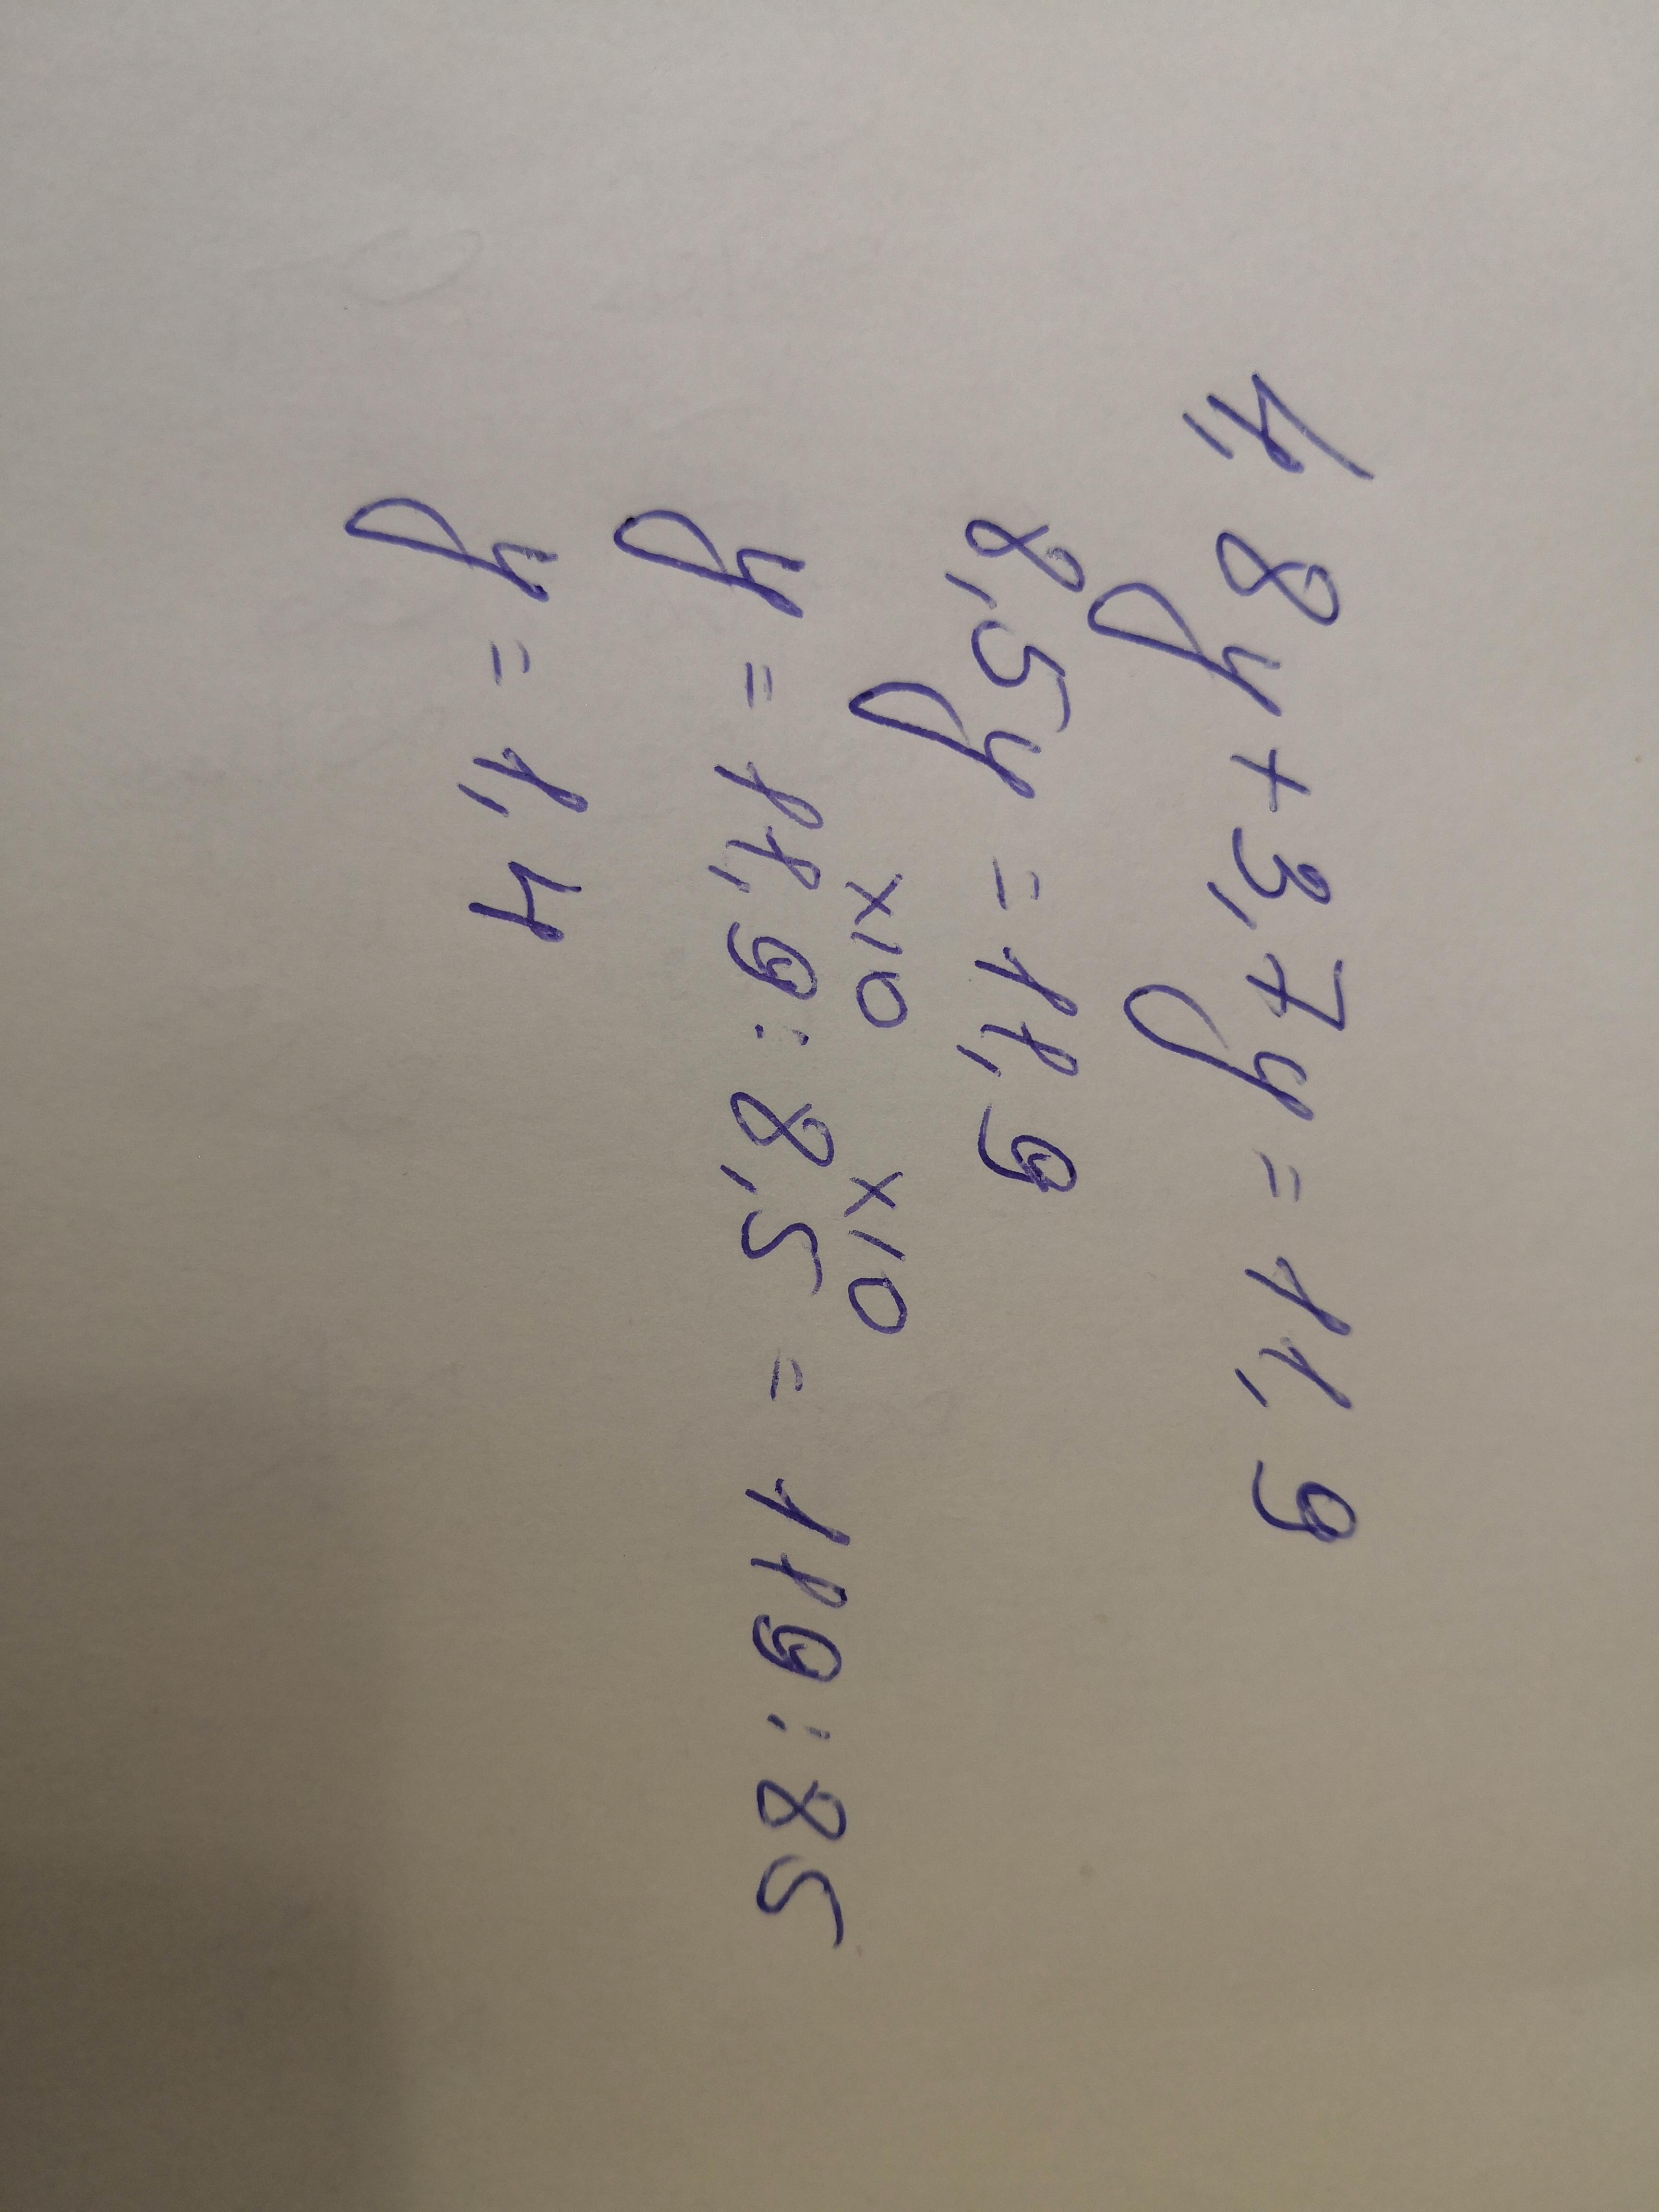 4,8y+3,7y=11,9
8,5y=11,9
×10 ×10
y=11,9:8,5=119:85
y=1,4